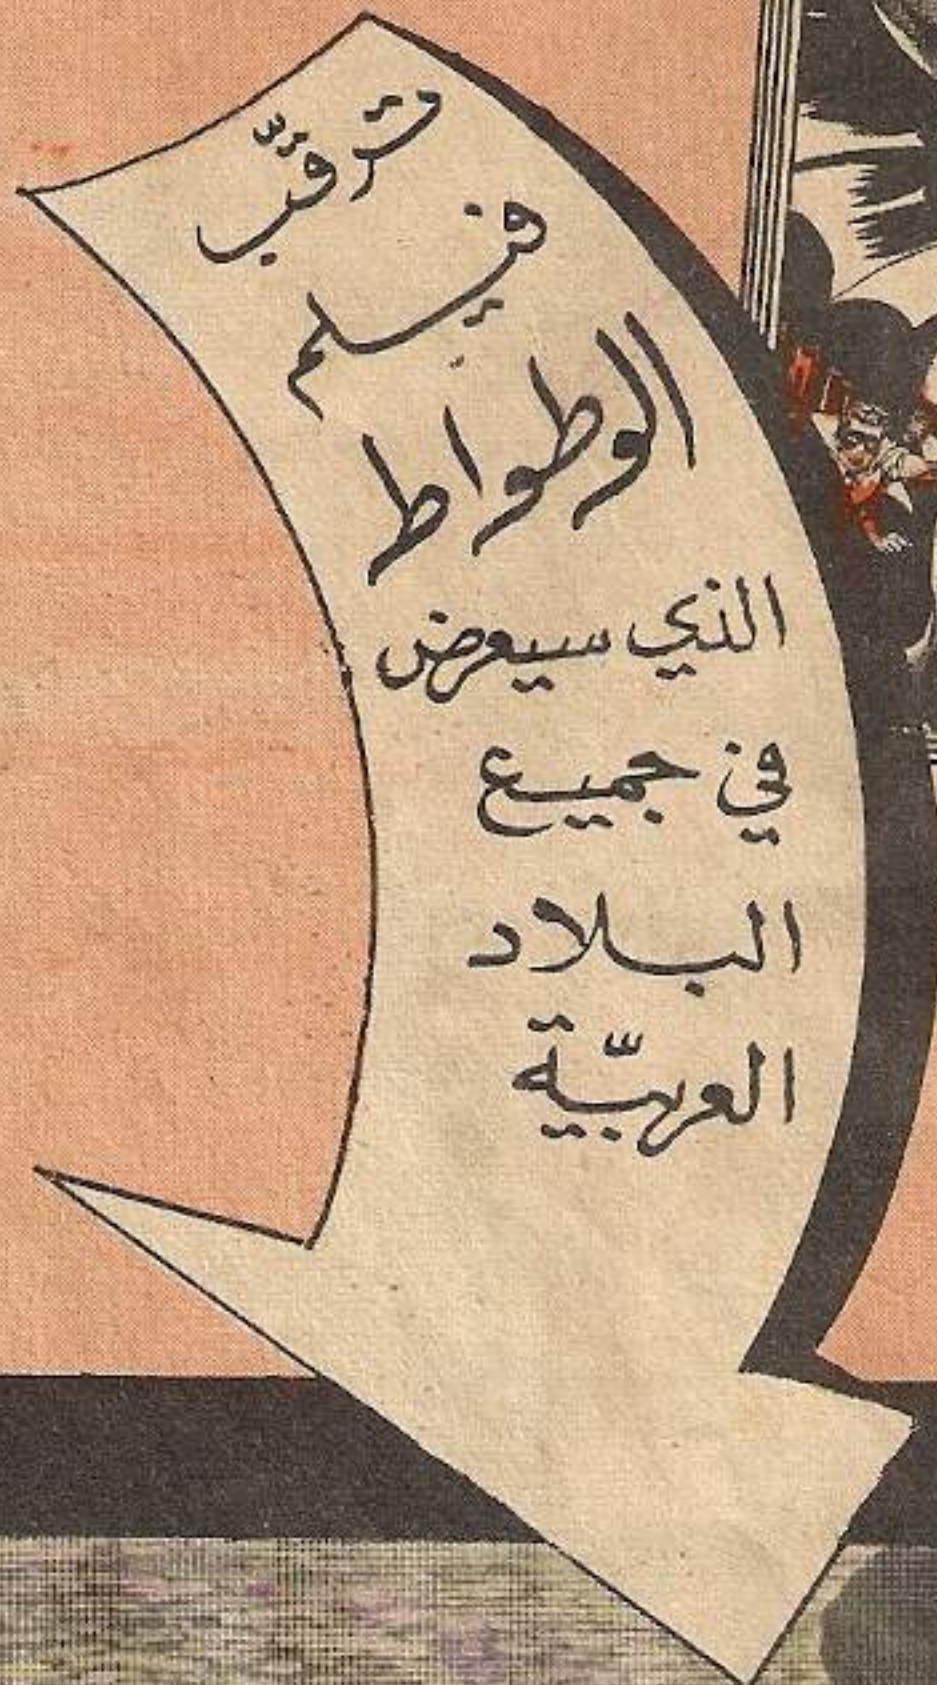 ترقّب
فيلم
الوطواط
الذي سيعرض
في جميع
البلاد
العربيّة